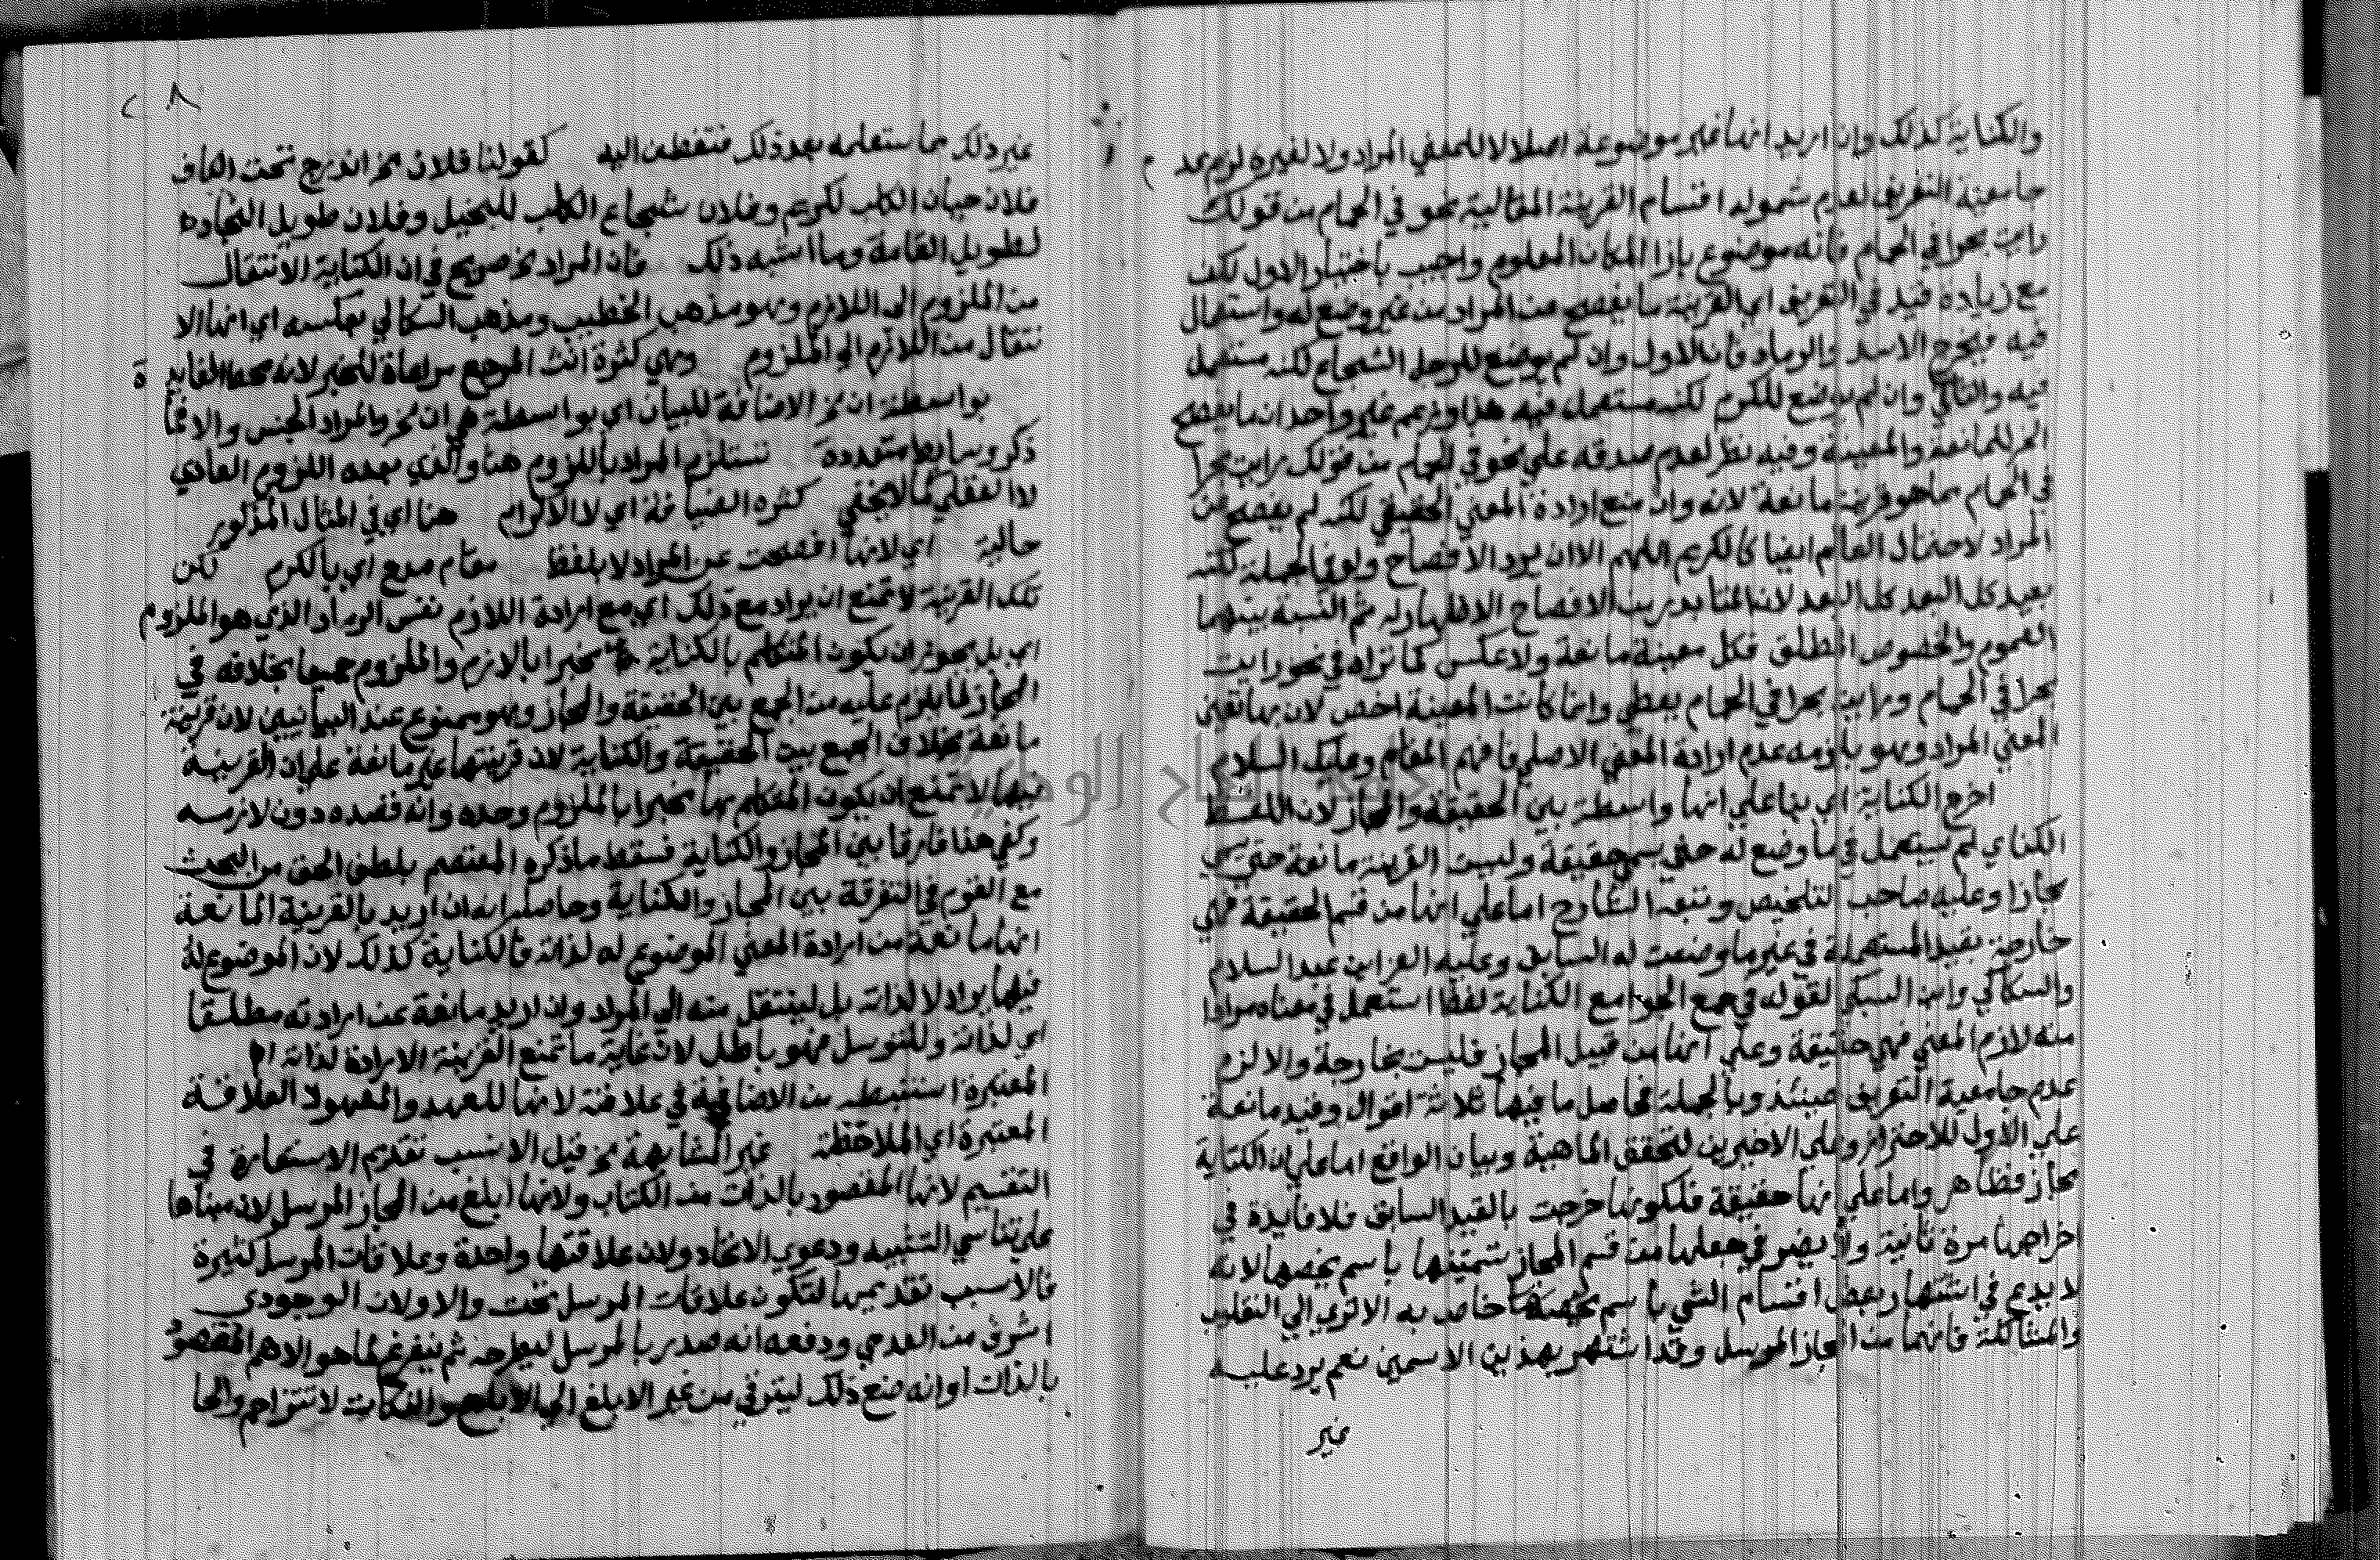 والكناية كذلك وان اريد انها غير موضوعة اصلا لا للمعني المراد ولا لغيره لزم عدم
جامعية التعريف لعدم شموله اقسام القرينة المقالية نحو في الحمام من قولك
رايت بحرا في الحمام فانه موضوع بازا المكان المعلوم واجيب باختيار الاول لكن
مع زيادة قيد في التعريف اي القرينة ما يفصح عن المراد من غير وضع له واستعمال
فيه فيخرج الاسد والرماد فان الاول وان لم يوضع للرجل الشجاع لكنه مستعمل
فيه والثاني وان لم يوضع للكرم لكنه مستعمل فيه هذا وزعم غير واحد ان ما يفصح
الخ للمانعة والمعينة وفيه نظر لعدم صدقه علي نحو في الحمام من قولك رايت بحرا
في الحمام مما هو قرينة مانعة لانه وان منع ارادة المعني الحقيقي لكنه لم يفصح عن
المراد لاحتمال العالم ايضا كالكريم اللهم الا ان يريد الافصاح ولو في الجملة لكنه
بعيد كل البعد لان المتبادر من الافصاح الاظهار له ثم النسبة بينهما
العموم والخصوص المطلق فكل معينة مانعة ولا عكس كما تراه في نحو رايت
بحرا في الحمام ورايت بحرا في الحمام يعطي وانما كانت المعينة اخص لان بها تعين
المعني المراد وهو يلزمه عدم ارادة المعني الاصلي فافهم المقام وعليك السلام
اخرج الكناية اي بنا علي انها واسطة بين الحقيقة والمجاز لان اللفظ
الكناي لم يستعمل في ما وضع له حتي يسمي حقيقة وليست القرينة مانعة حتي يسمي
مجازا وعليه صاحب التلخيص وتبعه الشارح اما علي انها من قسم الحقيقة فهي
خارجة بقيد المستعملة في غير ما وضعت له السابق وعليه العز ابن عبد السلام
والسكاكي وابن السبكي لقوله في جمع الجوامع الكناية لفظ استعمل في معناه مرادا
منه لازم المعني فهي حقيقة وعلي انها من قبيل المجاز فليست بخارجة والا لزم
عدم جامعية التعريف حينئذ وبالجملة فحاصل ما فيها ثلاثة اقوال وقيد مانعة
علي الاول للاحتراز وعلي الاخيرين لتحقق الماهية وبيان الواقع اما علي ان الكناية
مجاز فظاهر واما علي انها حقيقة فلكونها خرجت بالقيد السابق فلا فايدة في
اخراجها مرة ثانية ولا يضر في جعلها من قسم المجاز تسميتها باسم يخصها لانه
لا بدع في اشتهار بعض اقسام الشي باسم خاص به الا تري الي التغليب
والمشاكلة فانهما من المجاز المرسل وقد اشتهر بهذين الاسمين نعم يرد عليه
غير
٨
غير ذلك مما ستعلمه بعد ذلك فتفطن اليه كقولنا فلان الخ اندرج تحت الكاف
فلان جبان الكلب لكريم وفلان شجاع الكلب للبخيل وفلان طويل النجاد
لطويل القامة وما اشبه ذلك فان المراد الخ صريح في ان الكناية الانتقال
من الملزوم الي اللازم وهو مذهب الخطيب ومذهب السكاكي بعكسه اي انها الا
نتقال من اللازم الي الملزوم وهي كثرة انث المرجع مراعاة للخبر لانه محط الفايدة
بواسطة ان الخ الاضافة للبيان اي بواسطة هي ان الخ والمراد الجنس والا فما
ذكر وسايط متعددة تستلزم المراد باللزوم هنا والذي بعده اللزوم العادي
لا العقلي كما لا يخفي كثرة الضيافة اي لا الاكرام هنا اي في المثال المذكور
حالية اي لانها افصحت عن المراد لا بلفظ مقام مدح اي بالكرم لكن
تلك القرينة لا تمنع ان يراد مع ذلك اي مع ارادة اللازم نفس الرماد الذي هو الملزوم
اي بل يجوز ان يكون المتكلم بالكناية مخبرا باللازم والملزوم جميعا بخلافه في
المجاز لما يلزم عليه من الجمع بين الحقيقة والمجاز وهو ممنوع عند البيانيين لان قرينته
مانعة بخلاف الجمع بين الحقيقة والكناية لان قرينتها غير مانعة علي ان القرينة
فيها لا تمنع ان يكون المتكلم بها مخبرا بالملزوم وحده وانه قصده دون لازمه
وكفي هذا فارقا بين المجاز والكناية فسقط ما ذكره المعتصم بلطف الحق من البحث
مع القوم في التفرقة بين المجاز والكناية وحاصله انه ان اريد بالقرينة المانعة
انها مانعة من ارادة المعني الموضوع له لذاته فالكناية كذلك لان الموضوع له
فيها يراد لا لذاته بل لينتقل منه الي المراد وان اريد مانعة عن ارادته مطلقا
اي لذاته وللتوسل فهو باطل لان غاية ما تمنع القرينة الارادة لذاته اه
المعتبرة استنبطه من الاضافة في علاقته لانها للعهد والمعهود العلاقة
المعتبرة اي الملاحظة غير المشابهة الخ قيل الانسب تقديم الاستعارة في
التقسيم لانها المقصود بالذات من الكتاب ولانها ابلغ من المجاز المرسل لان مبناها
علي تناسي التشبيه ودعوي الاتحاد ولان علاقتها واحدة وعلاقات المرسل كثيرة
فالانسب تقديمها لتكون علاقات المرسل تحت والا ولان الوجودي
اشرف من العدمي ودفعه انه صدر بالمرسل ليطرحه ثم يتفرغ لما هو الاهم المقصود
بالذات او انه صنع ذلك ليترقي من غير الابلغ الي الابلغ والنكات لا تتزاحم والحا
جامعة النجاح الوطنية